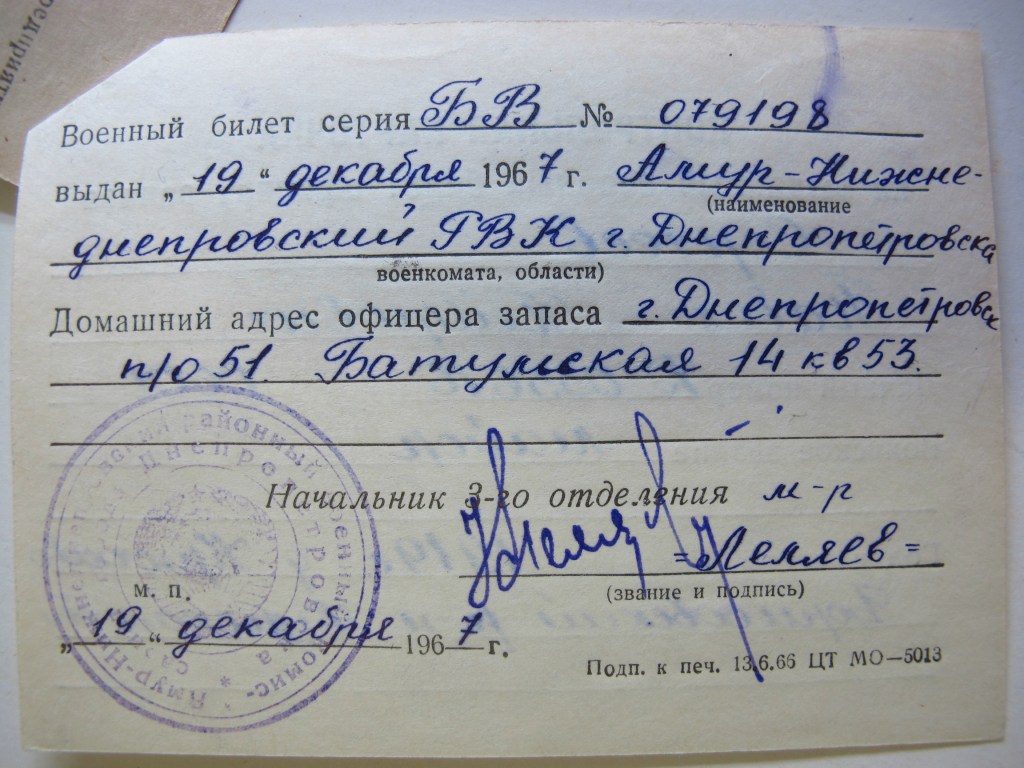 Военный билет серия БВ № 079198
выдан „ 19 “ декабря 1967 г. Амур-Нижне-
(наименование
днепровский ГВК г. Днепропетровска
военкомата, области)
Домашний адрес офицера запаса г. Днепропетровск
п/о 51. Батумская 14 кв 53.
Начальник 3-го отделения м-р
=Леляев=
(звание и подпись)
м. п.
„ 19 “ декабря 1967 г.
Подп. к печ. 13.6.66 ЦТ МО—5013